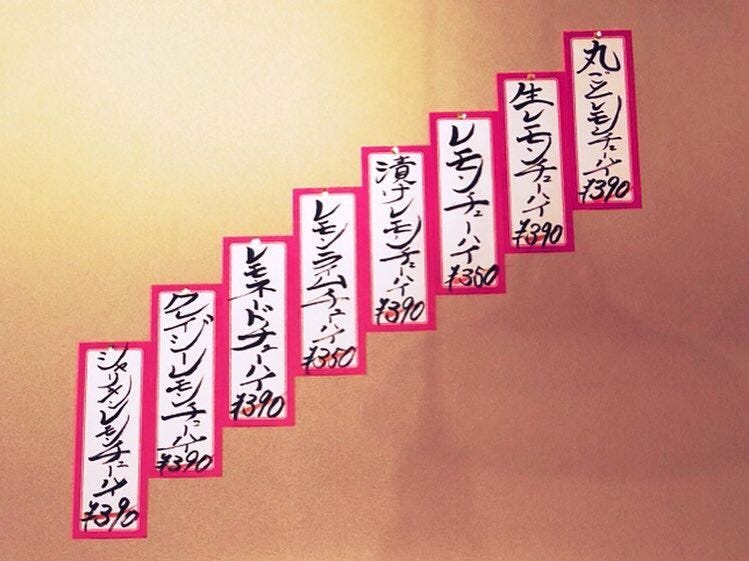 丸ごとレモンチューハイ
¥390
生レモンチューハイ
¥390
レモンチューハイ
¥350
漬けレモンチューハイ
¥390
レモンライムチューハイ
¥350
レモネードチューハイ
¥390
クレイジーレモンチューハイ
¥390
シャリメンレモンチューハイ
¥390